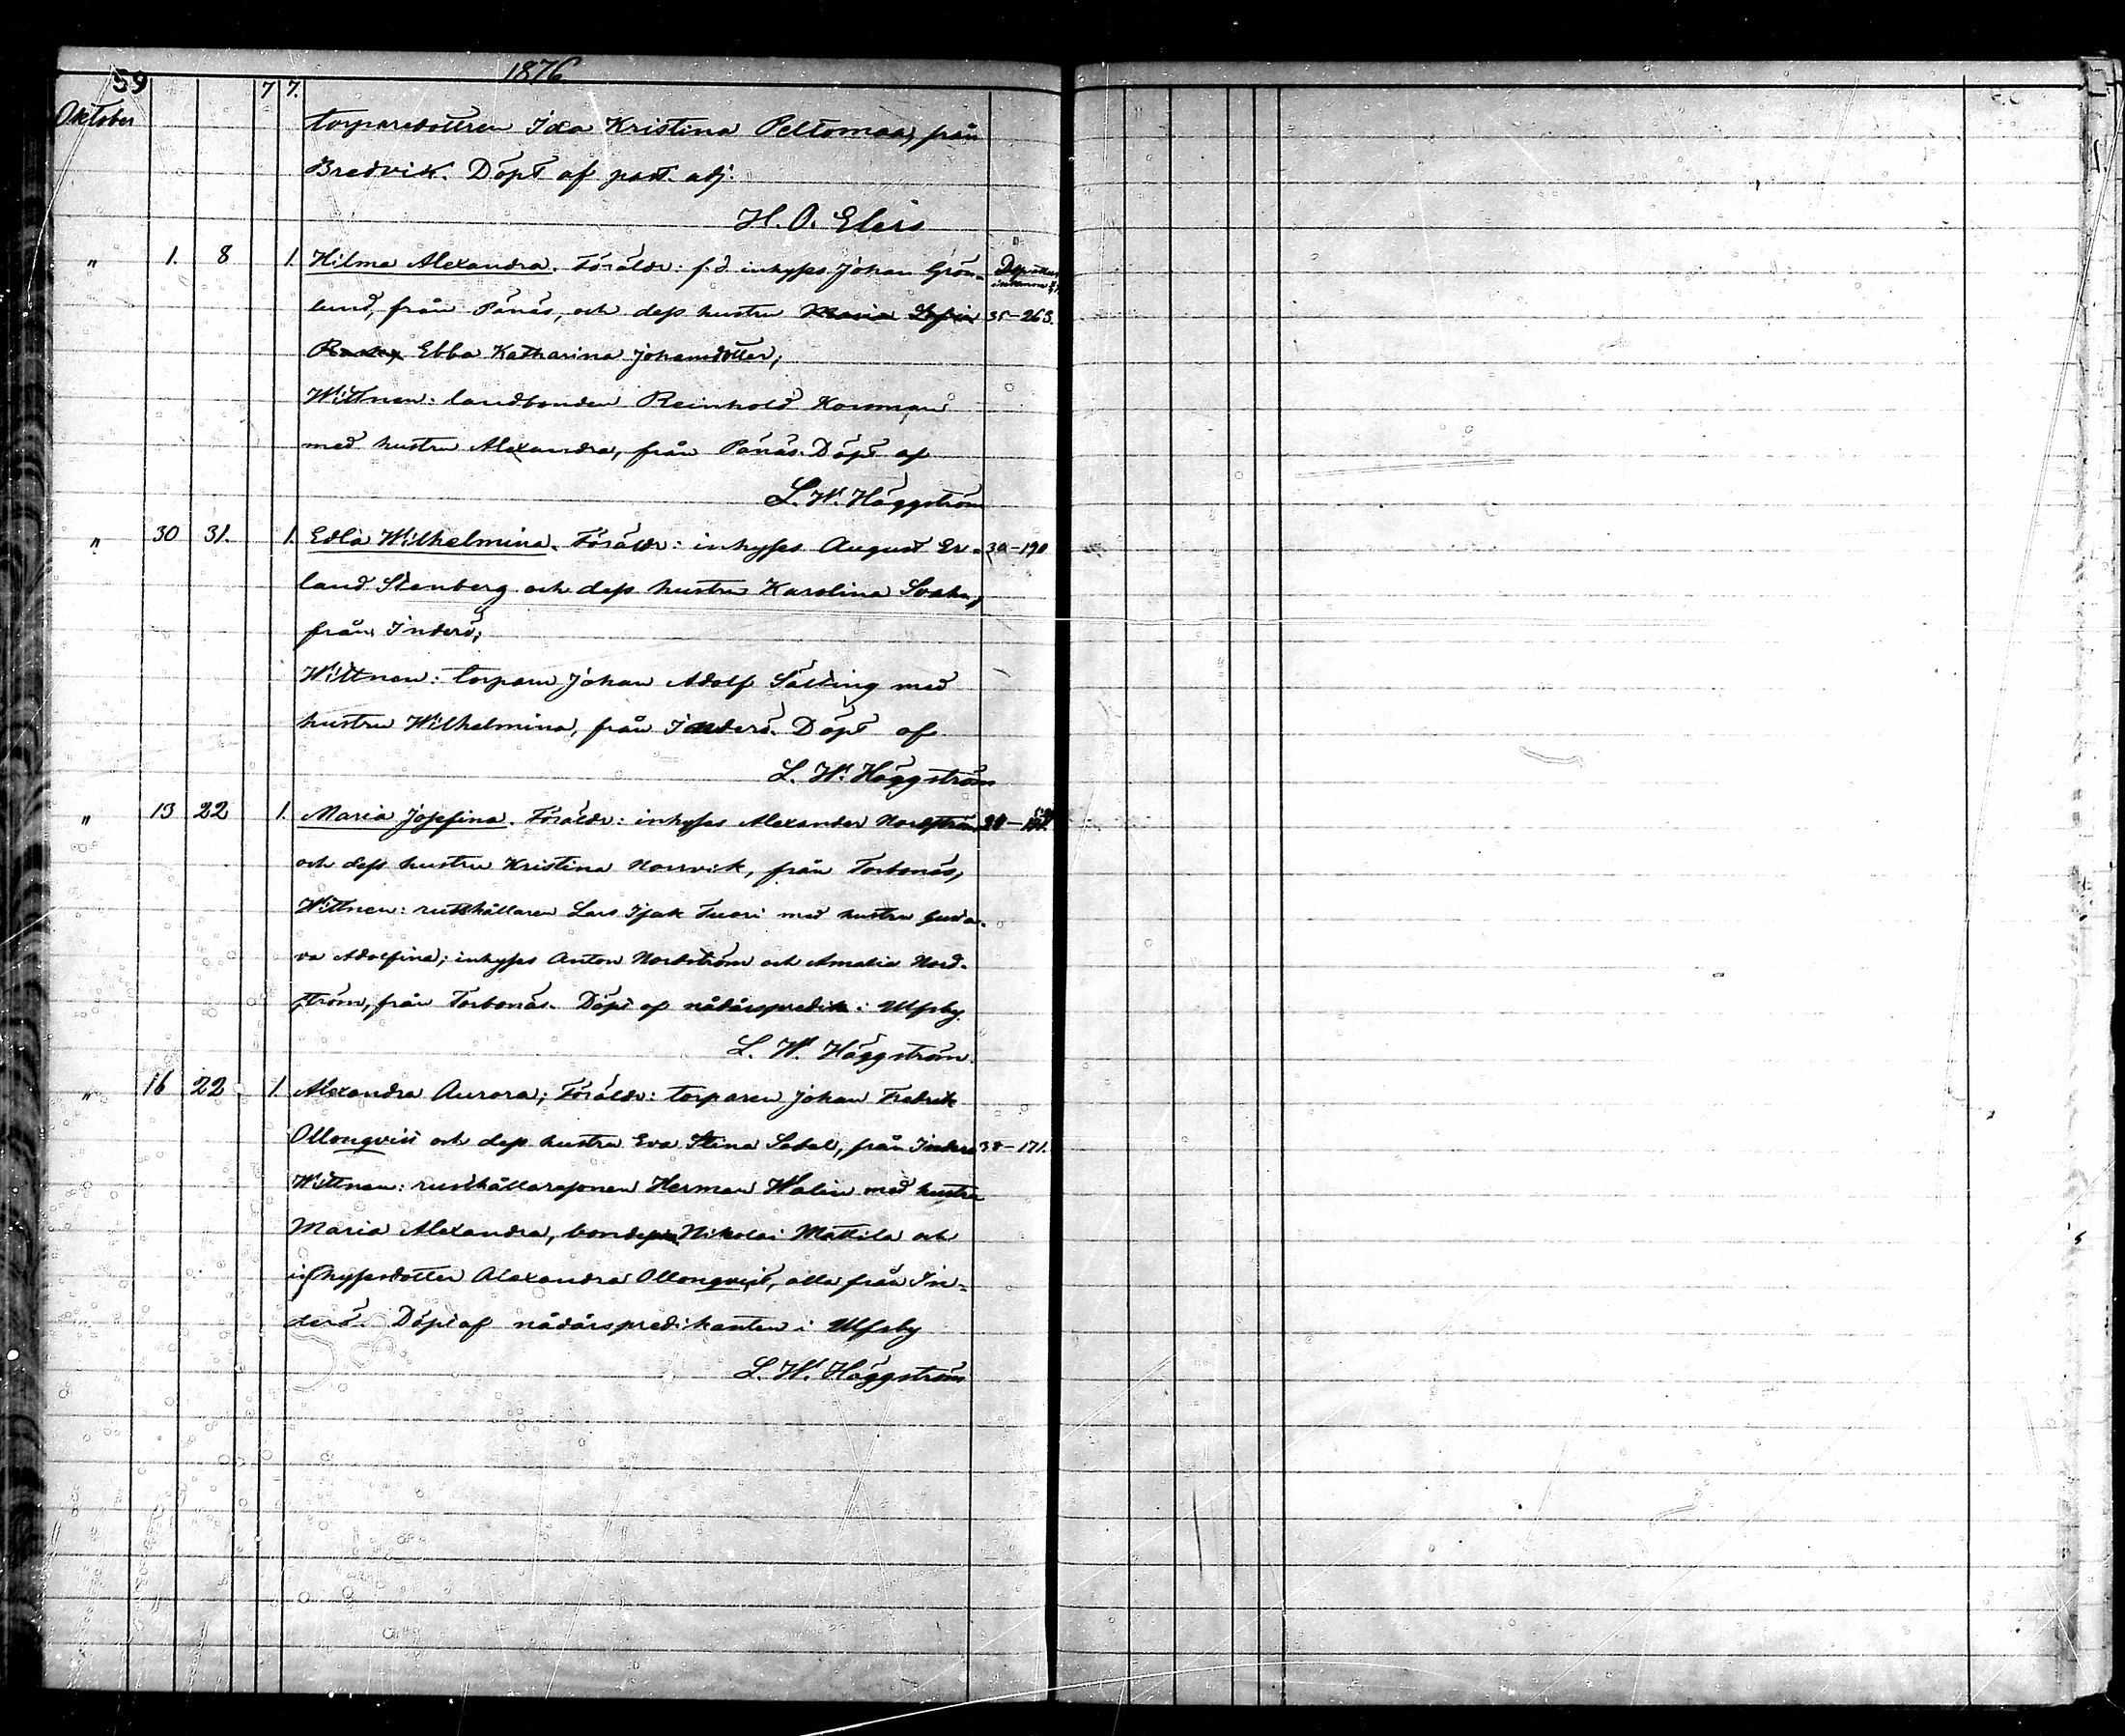 59 1876
Oktober 7 7. torparedottren Ida Kristina Peltomaa, från
Bredvik. Döpt af past. adj.
H. O. Eleis
" 1. 8 1. Hilma Alexandra. Föräldr: f.d. inhyses Johan Grön-
lund, från Pänäs, och dess hustru Maria Sofia 35-263.
Ebba Katharina Johansdotter,
Wittnen: landbonden Reinhold Korsman
med hustru Alexandra, från Pänäs. Döpt af
L. W. Häggström
" 30 31. 1. Edla Wilhelmina. Föräldr: inhyses August Er- 30-190
land Stenberg och dess hustru Karolina Svahn,
från Inderö,
Wittnen: torparn Johan Adolf Sälting med
hustru Wilhelmina, från Inderö. Döpt af
L. W. Häggström
" 13 22 1. Maria Josefina. Föräldr: inhyses Alexander Nordström
och dess hustru Kristina Norrvik, från Torbonäs,
Wittnen: rusthållaren Lars Isak Tuori med hustru Gusta-
va Adolfina; inhyses Anton Nordström och Amalia Nord-
ström, från Torbonäs. Döpt af nådårspredik. i Ulfsby.
L. W. Häggström.
" 16 22 1. Alexandra Aurora; Föräldr: torparen Johan Fredrik
Ollonqvist och dess hustru Eva Stina Sabel, från Inderö 38-171.
Wittnen: rusthållaresonen Herman Walin med hustru
Maria Alexandra, bondeson Nikolai Mattila och
inhysesdotter Alexandra Ollonqvist, alla från In-
derö. Döpt af nådårspredikanten i Ulfsby
L. W. Häggström